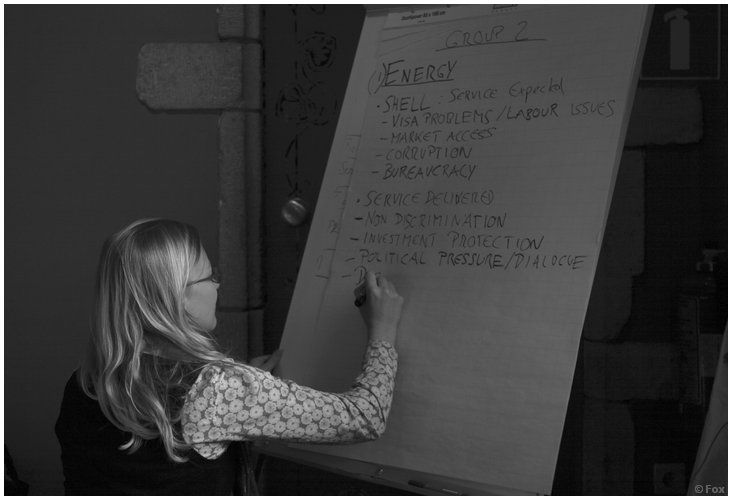 GROUP 2
① ENERGY
• SHELL : Service Expected
- VISA PROBLEMS / LABOUR ISSUES
- MARKET ACCESS
- CORRUPTION
- BUREAUCRACY
• SERVICE DELIVERED
- NON DISCRIMINATION
- INVESTMENT PROTECTION
- POLITICAL PRESSURE/DIALOGUE
-
© Fox